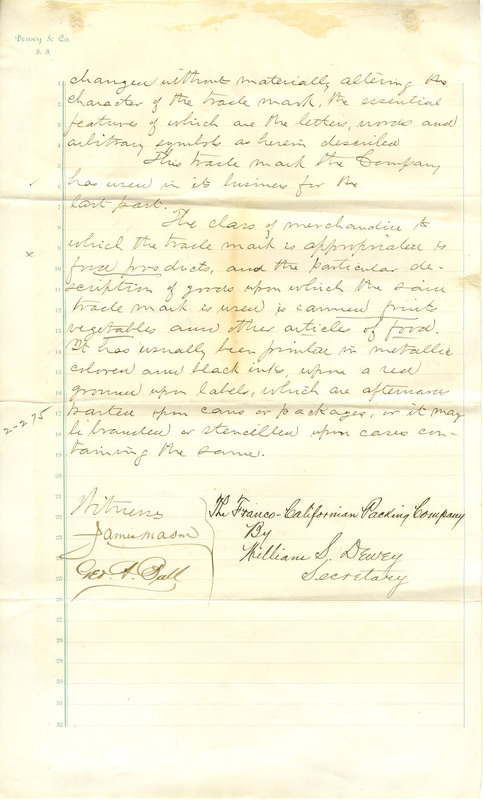 Dewey & Co.
S. F.
1 changed without materially altering the
2 character of the trade mark, the essential
3 features of which are the letters, words and
4 arbitrary symbols as herein described
5 This trade mark the Company
6 has used in its business for the
7 last past.
8 The class of merchandise to
9 which the trade mark is appropriated is
10 food products, and the particular de-
11 scription of goods upon which the said
12 trade mark is used is canned fruits
13 vegetables and other articles of food.
14 It has usually been printed in metallic
15 colored and black inks, upon a red
16 ground upon labels, which are afterward
17 pasted upon cans or packages, or it may
18 be branded or stencilled upon cases con-
19 taining the same.
20
21
22 Witness The Franco-Californian Packing Company
23 James Mason By
24 William S. Dewey
25 Geo. A. Ball Secretary
26
27
28
29
30
31
32
x
2-275